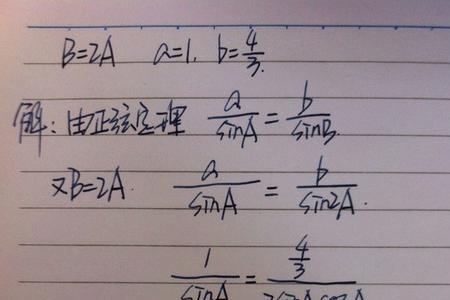 B=2A a=1. b=4/3.
解:由正弦定理 a/sinA = b/sinB.
又B=2A. a/sinA = b/sin2A.
1/sinA = 4/3/2sinAcosA